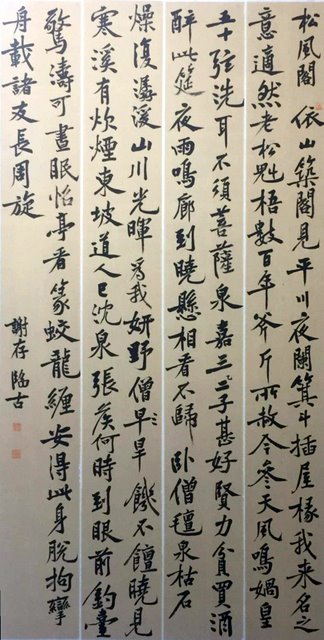 松風閣 依山築閣見平川夜闌箕斗插屋椽我來名之
意適然老松魁梧數百年斧斤所赦今參天風鳴媧皇
五十弦洗耳不須菩薩泉嘉三二子甚好賢力貧買酒
醉此筵夜雨鳴廊到曉懸相看不歸臥僧氈泉枯石
燥復潺湲山川光暉為我妍野僧早旱饑不饘曉見
寒溪有炊煙東坡道人已沈泉張侯何時到眼前釣臺
驚濤可晝眠怡亭看篆蛟龍纏安得此身脫拘攣
舟載諸友長周旋
謝存臨古